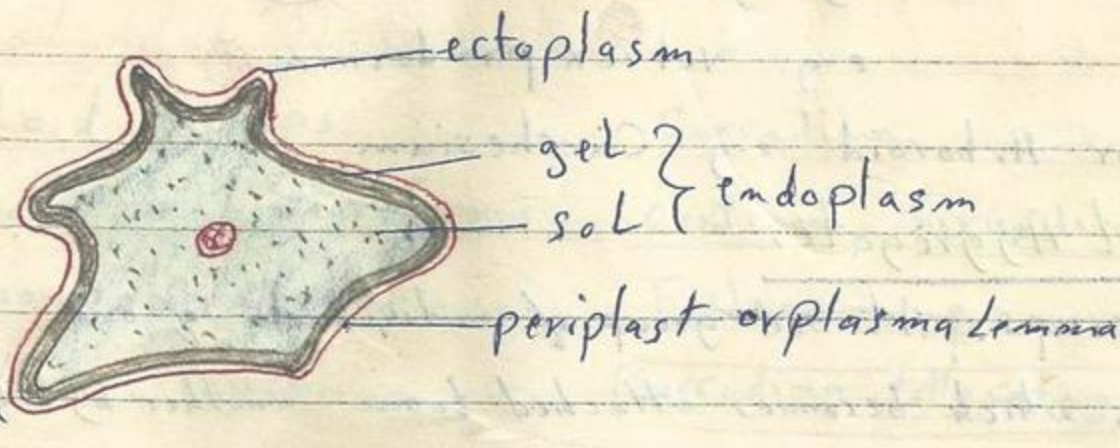 ectoplasm
gel
sol
endoplasm
periplast or plasma lemma